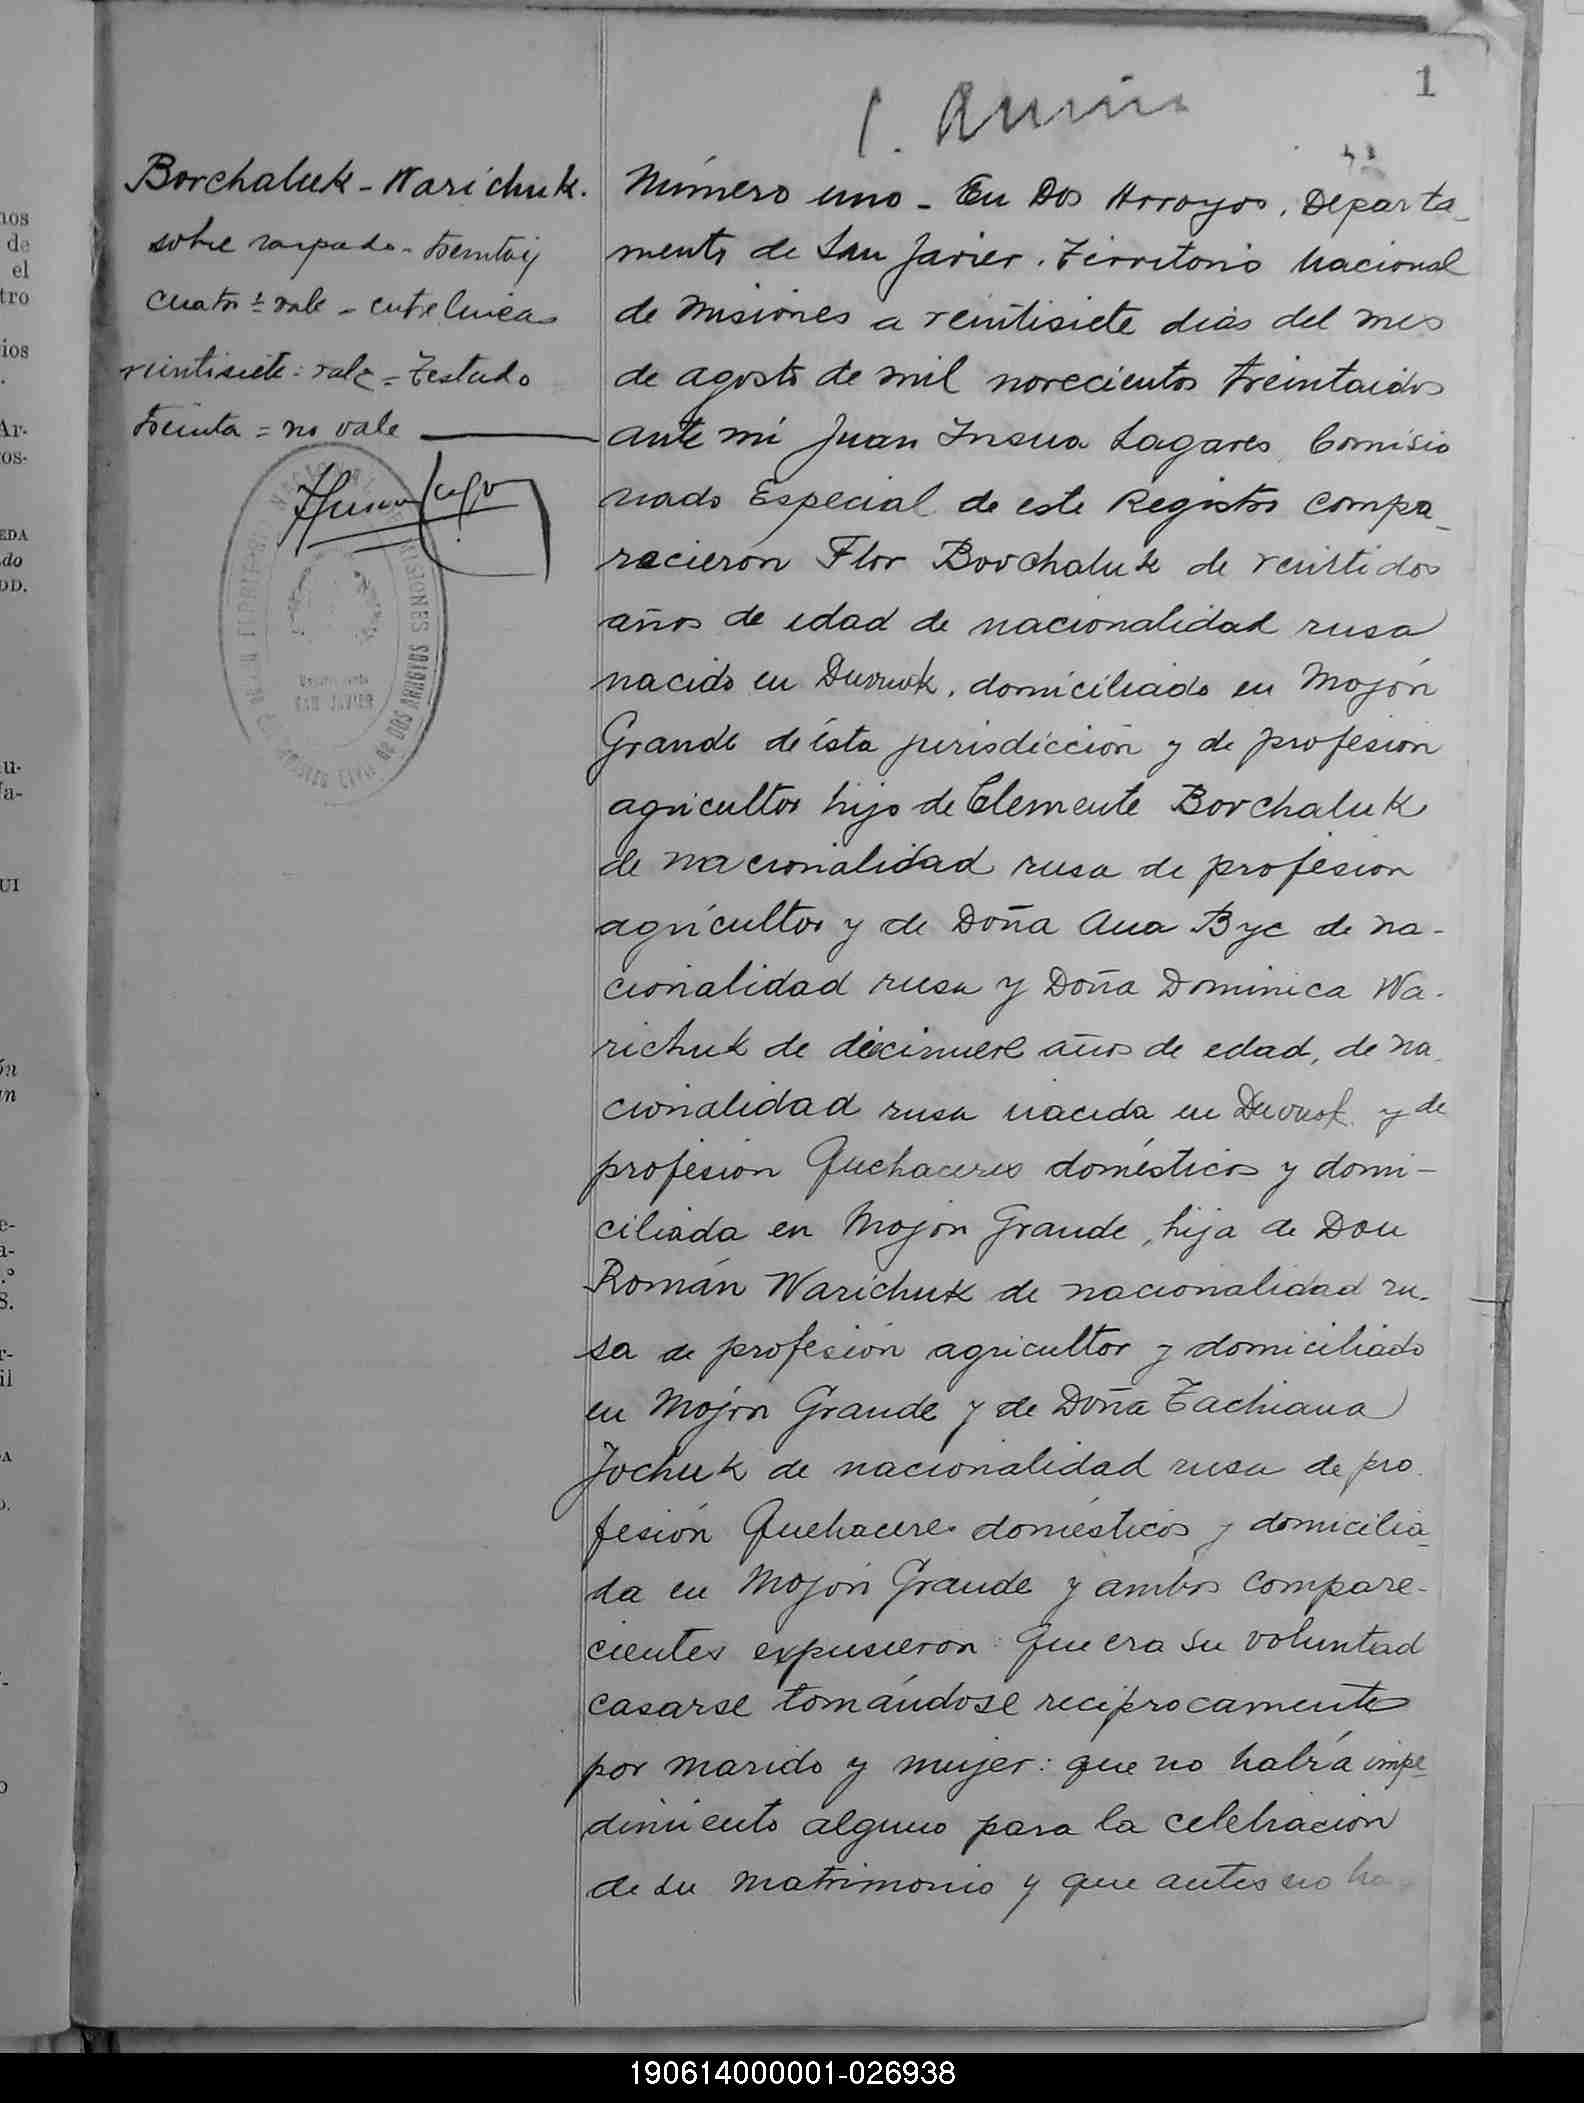 1
Borchaluk - Warichuk.
sobre raspado - treintaiy
cuatro = vale - entrelineas
veintisiete: vale = Testado
treinta = no vale
MISIONES
DOS ARROYOS
SAN JAVIER
Número uno - En Dos Arroyos, Departa_
mento de San Javier, Territorio Nacional
de Misiones a veintisiete dias del mes
de agosto de mil novecientos treintaidos
ante mi Juan Insua Lagares, Comisio
nado Especial de este Registro compa_
recieron Flor Borchaluk de veintidos
años de edad de nacionalidad rusa
nacido en domiciliado en Mojón
Grande de ésta jurisdicción y de profesion
agricultor hijo de Clemente Borchaluk
de nacionalidad rusa de profesion
agricultor y de Doña Ana Byc de na-
cionalidad rusa y Doña Dominica Wa-
richuk de diecinueve años de edad, de na
cionalidad rusa nacida en y de
profesion Quehaceres domésticos y domi-
ciliada en Mojón Grande, hija de Don
Román Warichuk de nacionalidad ru-
sa de profesión agricultor y domiciliado
en Mojón Grande y de Doña Tachiana
Jochuk de nacionalidad rusa de pro
fesión Quehaceres domésticos y domicilia_
da en Mojón Grande y ambos compare-
cientes expusieron: Que era su voluntad
casarse tomándose reciprocamente
por marido y mujer: que no habría impe_
dimiento alguno para la celebración
de su matrimonio y que antes no ha
190614000001-026938